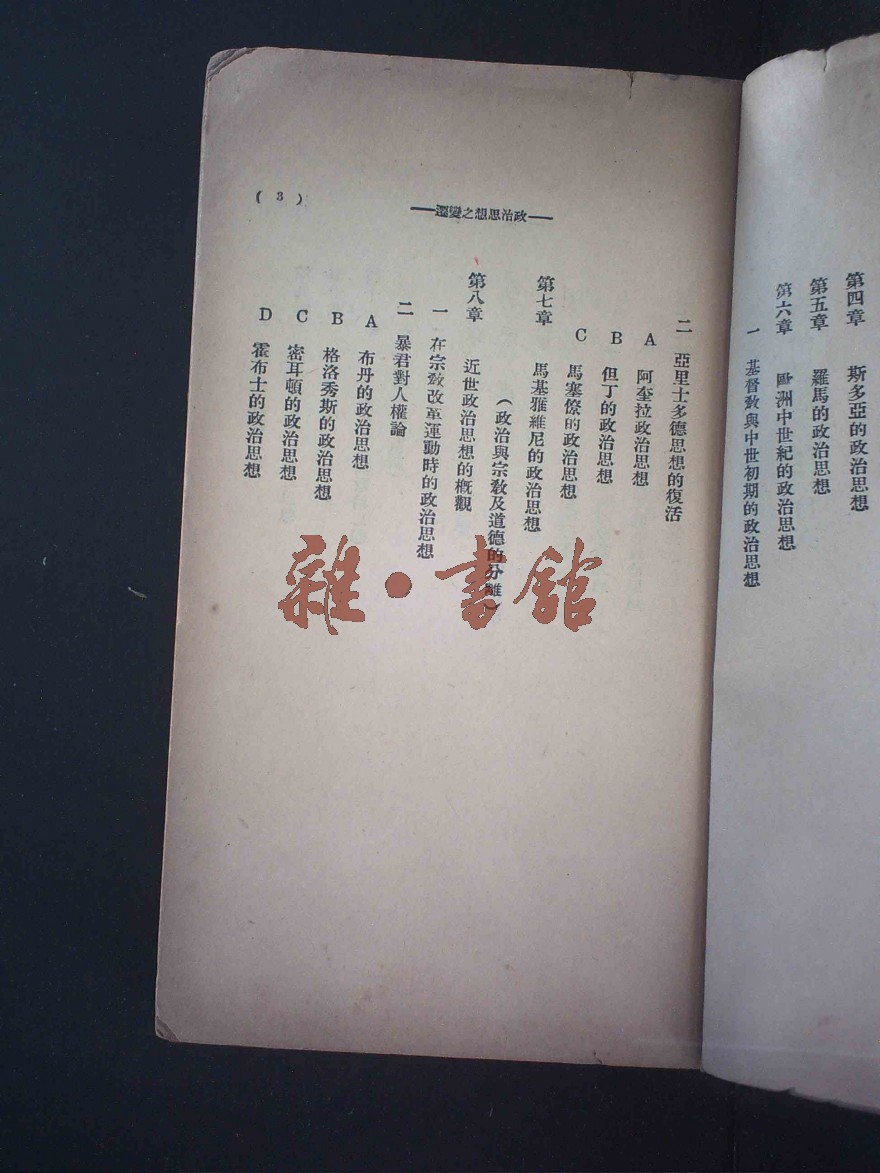 第四章 斯多亞的政治思想
第五章 羅馬的政治思想
第六章 歐洲中世紀的政治思想
一 基督教與中世初期的政治思想
——政治思想之變遷——
( 3 )
二 亞里士多德思想的復活
A 阿奎拉政治思想
B 但丁的政治思想
C 馬塞僚的政治思想
第七章 馬基雅維尼的政治思想
（政治與宗教及道德的分離）
第八章 近世政治思想的概觀
一 在宗教改革運動時的政治思想
二 暴君對人權論
A 布丹的政治思想
B 格洛秀斯的政治思想
C 密耳頓的政治思想
D 霍布士的政治思想
雜·書館